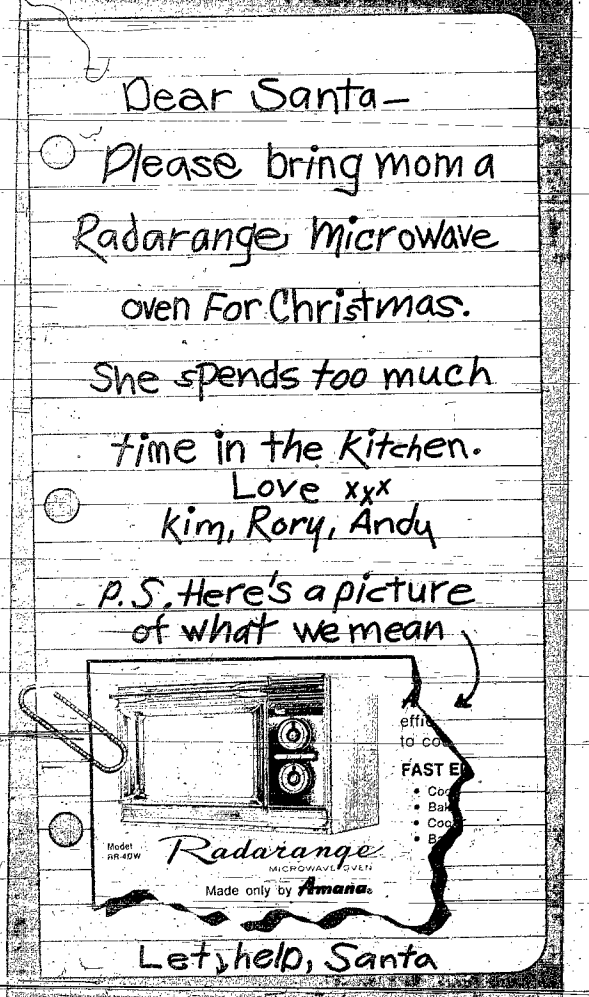 Dear Santa—
Please bring mom a
Radarange Microwave
oven For Christmas.
She spends too much
time in the kitchen.
Love xxx
Kim, Rory, Andy
P.S. Here's a picture
of what we mean
effi
to co
FAST E
• Co
• Bak
• Coo
• B
Model
RR-4DW
Radarange
MICROWAVE OVEN
Made only by Amana®
Let's help, Santa